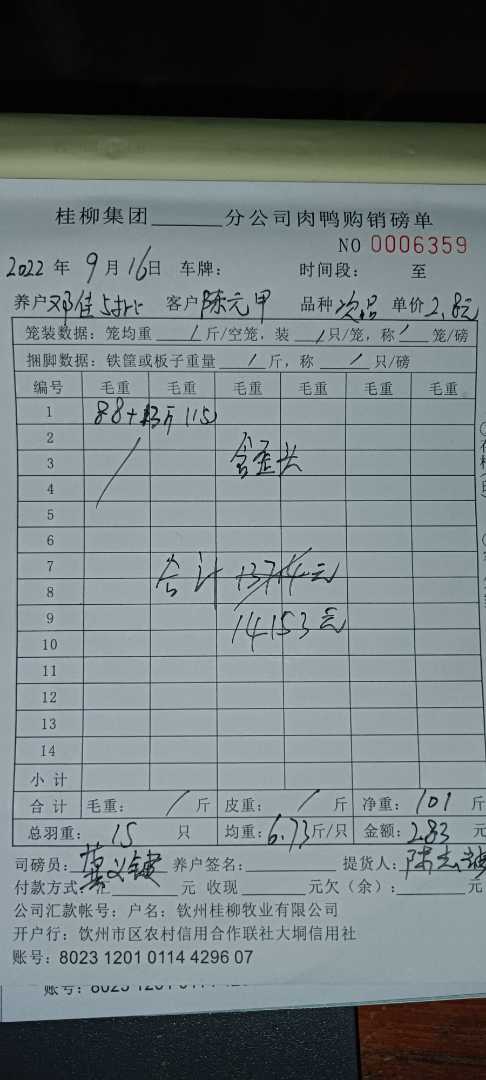 桂柳集团______分公司肉鸭购销磅单
NO 0006359
2022 年 9 月 16 日 车牌: 时间段: 至
养户 邓佳 客户 陈元甲 品种 次品 单价 2.8元
笼装数据: 笼均重 / 斤/空笼, 装 / 只/笼, 称 / 笼/磅
捆脚数据: 铁筐或板子重量 / 斤, 称 / 只/磅
编号 毛重 毛重 毛重 毛重 毛重 毛重
1 88+13斤 115
2
3 含歪头
4
5
6
7 合计 1374元
8
9 14153元
10
11
12
13
14
小计
合计 毛重: / 斤 皮重: / 斤 净重: 101 斤
总羽重: 15 只 均重: 6.73 斤/只 金额: 283 元
司磅员: 养户签名: 提货人: 陈志
付款方式: 汇______元 收现______元欠(余):______元
公司汇款帐号: 户名: 钦州桂柳牧业有限公司
开户行: 钦州市区农村信用合作联社大垌信用社
账号: 8023 1201 0114 4296 07
账号: 8023 1201 0114 429